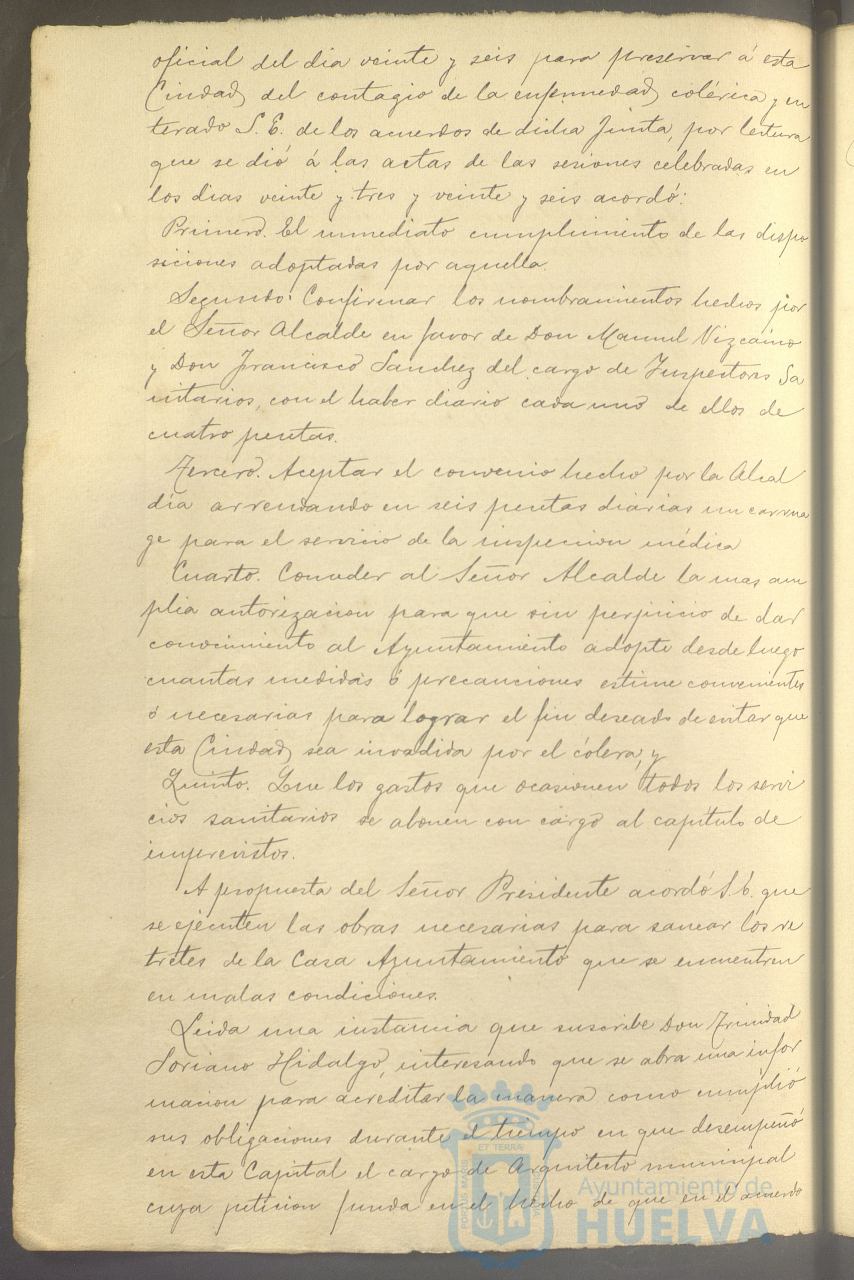 oficial del dia veinte y seis para preservar á esta
Ciudad del contagio de la enfermedad colérica y en
terado S. E. de los acuerdos de dicha Junta, por lectura
que se dió á las actas de las sesiones celebradas en
los dias veinte y tres y veinte y seis acordó:
Primero. El inmediato cumplimiento de las dispo
siciones adoptadas por aquella
Segundo: Confirmar los nombramientos hechos por
el Señor Alcalde en favor de Don Manuel Vizcaino
y Don Francisco Sanchez del cargo de Inspectores Sa
nitarios, con el haber diario cada uno de ellos de
cuatro pesetas.
Tercero. Aceptar el convenio hecho por la Alcal
día arrendando en seis pesetas diarias un carrua
ge para el servicio de la inspeccion médica
Cuarto. Conceder al Señor Alcalde la mas am
plia autorizacion para que sin perjuicio de dar
conocimiento al Ayuntamiento adopte desde luego
cuantas medidas ó precauciones estime convenientes
ó necesarias para lograr el fin deseado de evitar que
esta Ciudad sea invadida por el cólera; y
Quinto. Que los gastos que ocasionen todos los servi
cios sanitarios se abonen con cargo al capítulo de
imprevistos.
A propuesta del Señor Presidente acordó S. E. que
se ejecuten las obras necesarias para sanear los re
tretes de la Casa Ayuntamiento que se encuentren
en malas condiciones.
Leida una instancia que suscribe Don Trinidad
Soriano Hidalgo, interesando que se abra una infor
macion para acreditar la manera como cumplió
sus obligaciones durante el tiempo en que desempeñó
en esta Capital el cargo de Arquitecto municipal
cuya peticion funda en el hecho de que en el acuerdo
ET TERRÆ
PORTUS MARIS
Ayuntamiento de
HUELVA